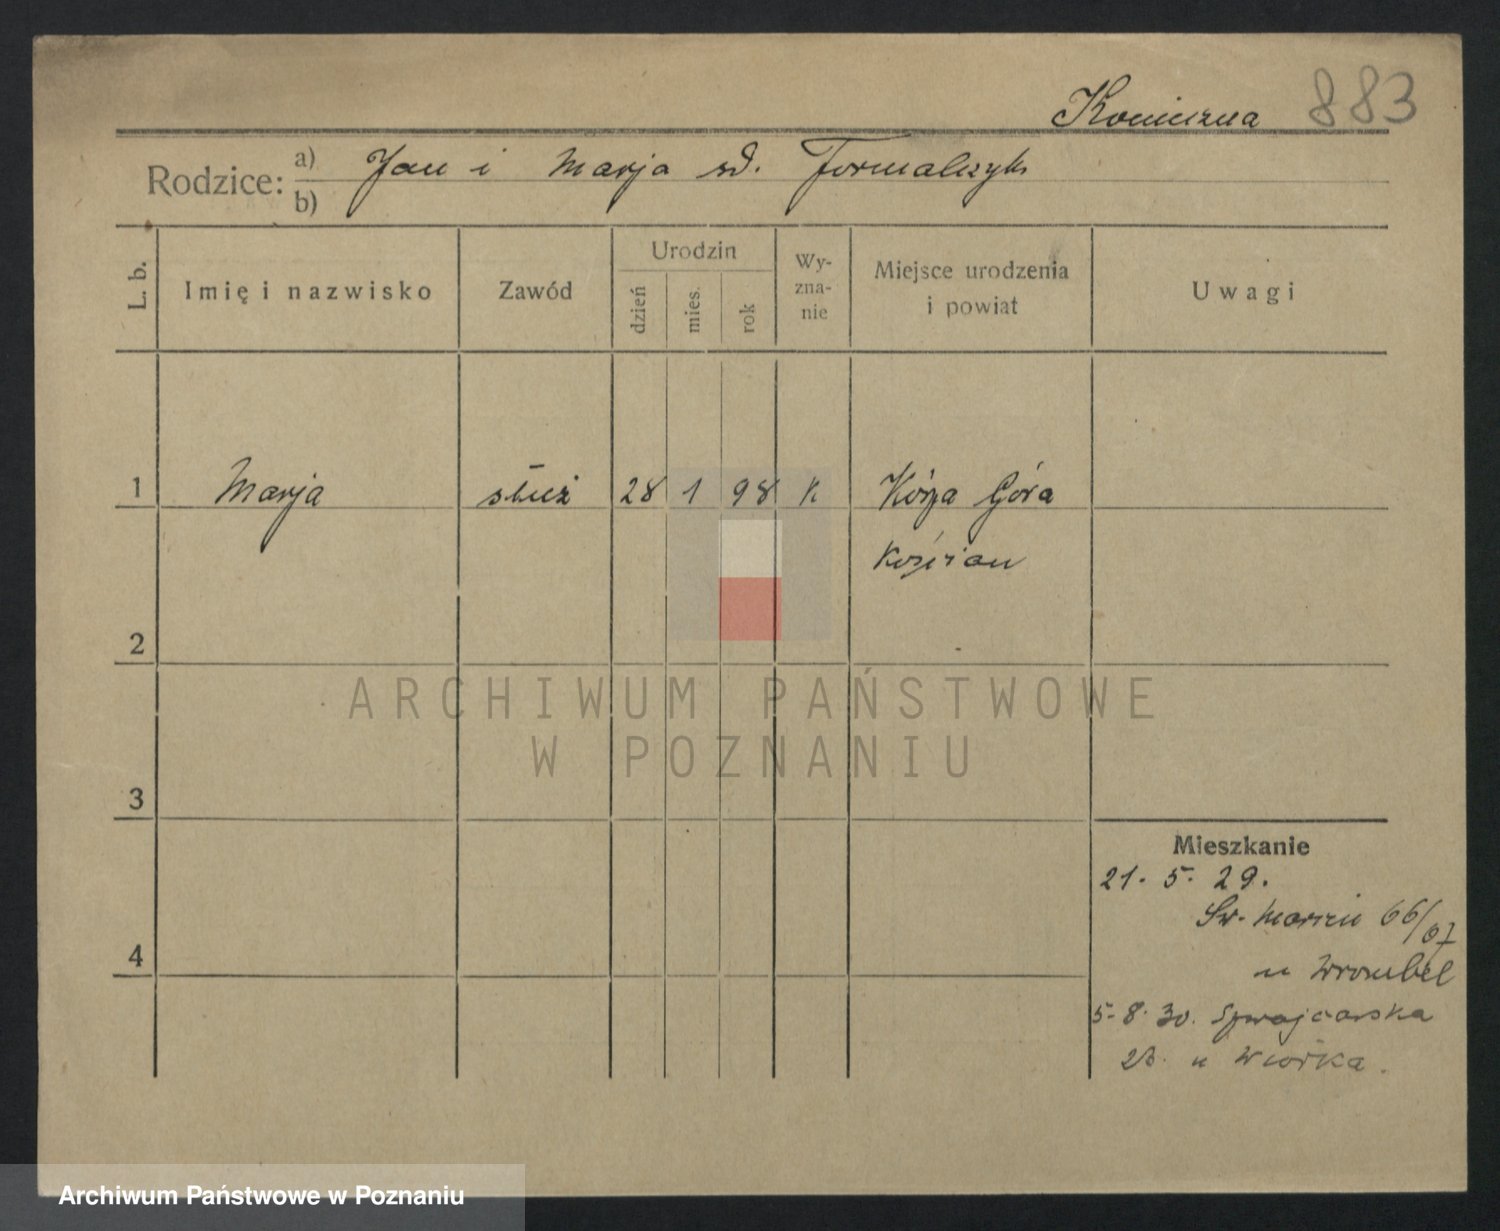 Konieczna 883
Rodzice: a) Jan i Marja zd. Formalczyk
b)
L. b. Imię i nazwisko Zawód Urodzin dzień mies. rok Wyznanie Miejsce urodzenia i powiat Uwagi
1 Marja służ 28 1 98 K. Kózia Góra
Kościan
2
ARCHIWUM PAŃSTWOWE
W POZNANIU
3
Mieszkanie
21. 5. 29.
Św. Marcin 66/67
4
u Wrombel
5. 8. 30. Szwajcarska
u Wiórka.
Archiwum Państwowe w Poznaniu